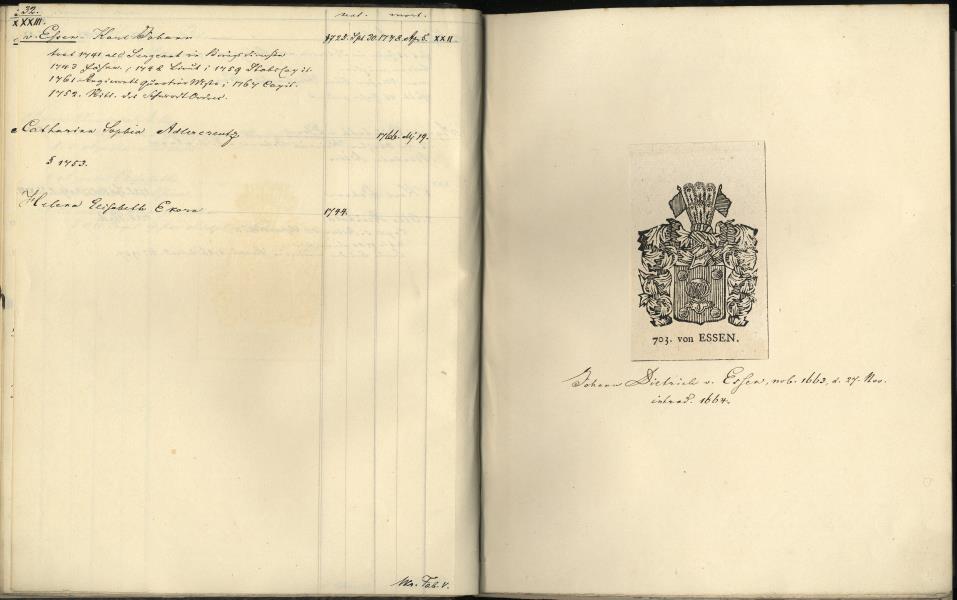 32.
nat. mort.
XXXIII.
v. Essen. Karl Johann 1723. Spt 30. 1773. Apr. 5. XXII
trat 1741 als Sergeant in Kriegsdienste
1743 Fähnr.; 1748 Lieut; 1759 StabsCapit.
1761 Regiments Quartier Mstr; 1767 Capit.
1752. Ritt. des Schwerdt Ordens.
Catharina Sophia Adlercreutz 1766. Mj 19.
§ 1753.
Helena Elisabeth 1744.
Tab. V.
703. von ESSEN.
Johann Dietrich v. Essen, nob. 1663, d. 27. Nov.
introd. 1664.